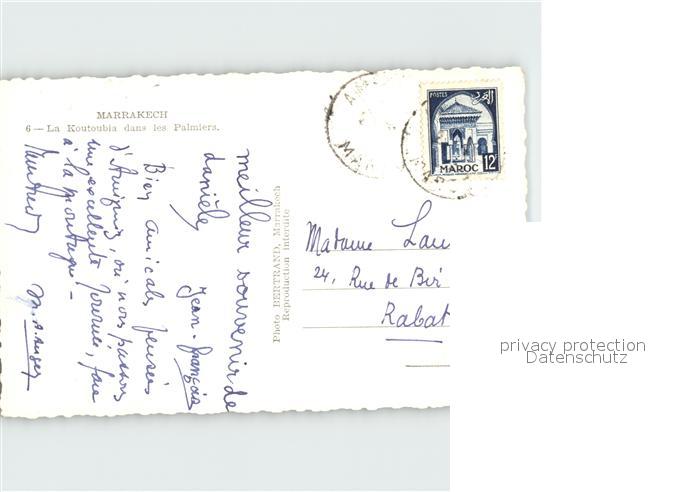 MARRAKECH
6 — La Koutoubia dans les Palmiers.
meilleur souvenir de
danièle
Jean-françois
Bien amicales pensées
où nous passons
une excellente journée, face
à la montagne -
Photo BERTRAND, Marrakech
Reproduction interdite
POSTES
البريد
MAROC 12
Madame Lau
24, Rue de
Rabat
privacy protection
Datenschutz